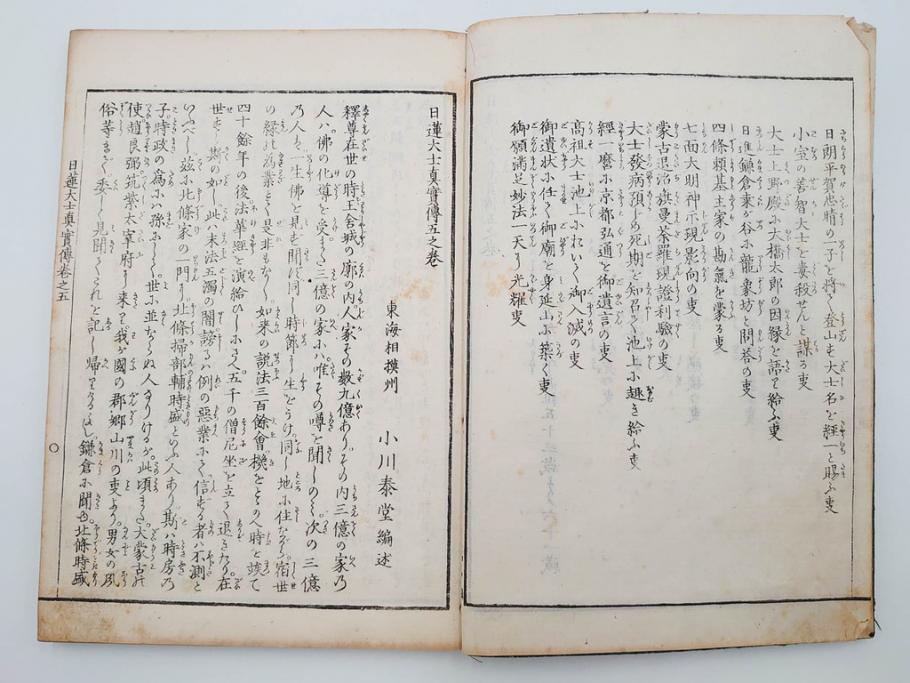 日朝平賀忠晴の一子を將て登山す大士名を經一と賜ふ叓
小室の善智大士を妻殺せんと謀る叓
大士上野殿に大橋太郎の因縁を語り給ふ叓
日進鎌倉桒が谷に龍象坊と問荅の叓
四條頼基主家の勘氣を蒙る叓
七面大明神示現影向の叓
蒙古退治旗曼荼羅現證利驗の叓
大士發病預め死期を知召て池上に趣き給ふ叓
經一麿に京都弘通を御遺言の叓
高祖大士池上において御入滅の叓
御遺状に任て御廟を身延山に築く叓
御願満足妙法一天に光耀叓
日蓮大士真實傳五之卷
東海相摸州 小川泰堂編述
釋尊在世の時王舍城の廓の内人家その數九億あり。その内三億の家乃
人は佛の化導を受。また三億の家には唯その噂を聞しのミ。次の三億
乃人々ハ一生佛を見も聞ず。同し時節に生をうけ。同し地に住ながら宿世
の縁此為業とて是非もなし。如来の説法三百餘會。機をとゝのへ時を竢て
四十餘年の後法華經を演給ひしにさへ。五千の僧尼坐を立て退きたり。在
世すら斯の如し。此ハ末法五濁の闇謗ハ例の惡業にて信ずる者ハ不測と
いふべし。茲に北條家の一門に。北條掃部輔時盛といふ人あり。斯ハ時房乃
子時政の為にハ孫にして。世に並ならぬ人なりけるが。此頃また大蒙古の
使趙良弼。筑紫太宰府に来て。我が國の郡郷山川の叓より。男女の風
俗等まで委しく見聞て。これを記し歸りたるよし。鎌倉に聞ゆ。北條時盛
日蓮大士真實傳卷之五